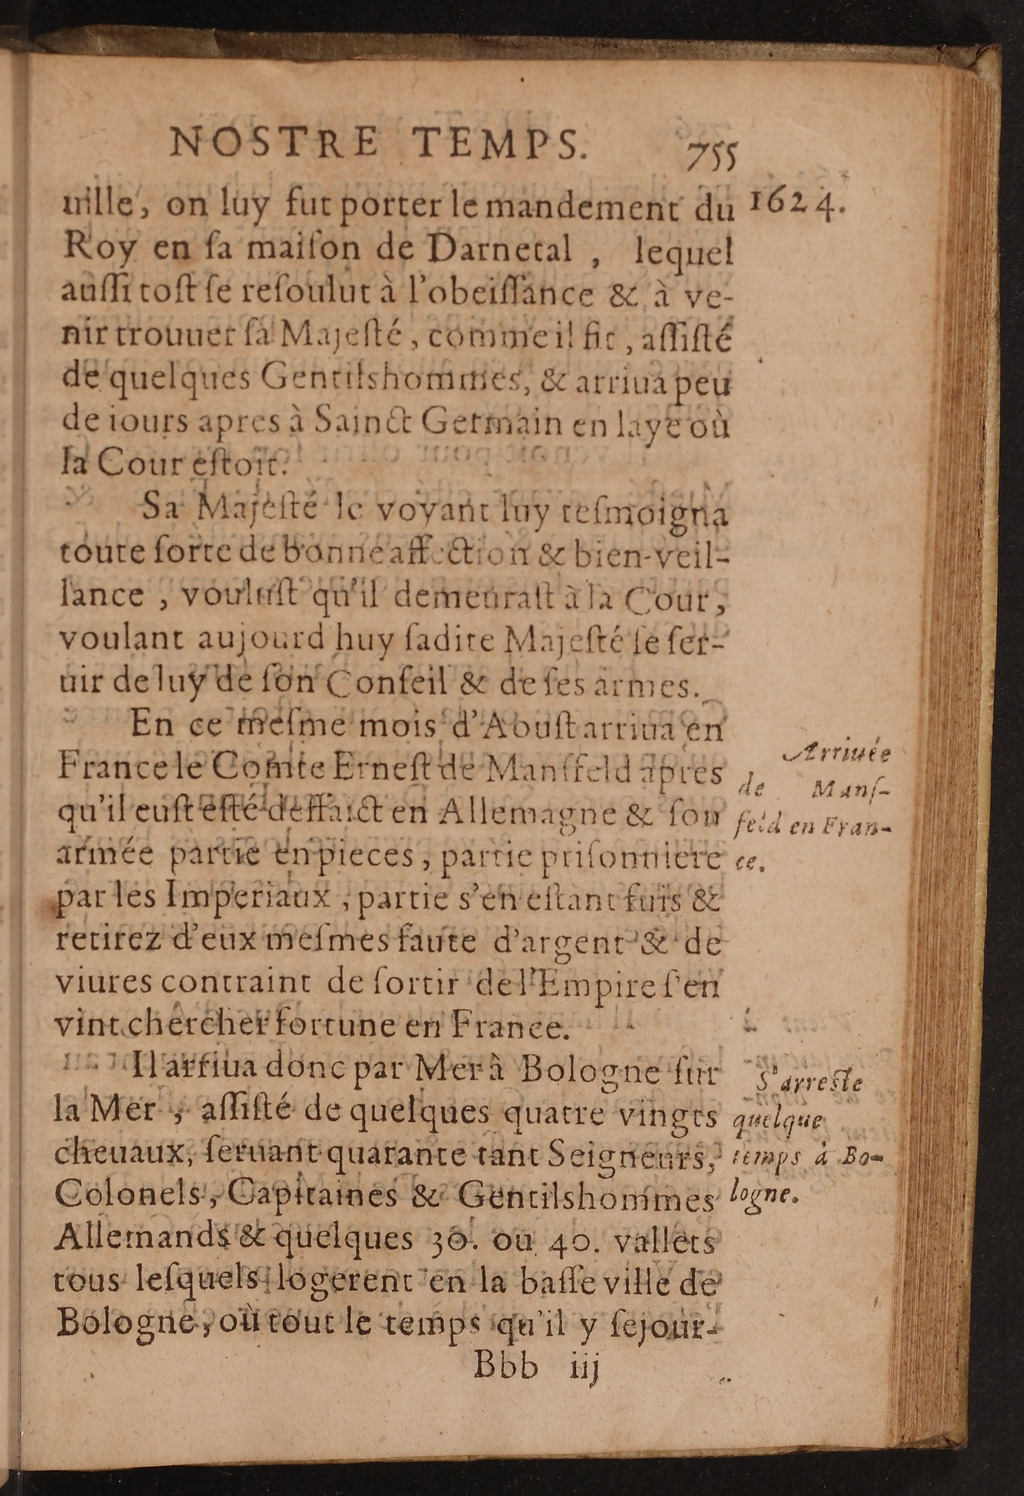 NOSTRE TEMPS. 755
uille, on luy fut porter le mandement du 1624.
Roy en ſa maiſon de Darnetal , lequel
auſſi toſt ſe reſoulut à l'obeiſſance & à ve-
nir trouuer ſa Majeſté, comme il fit, aſſiſté
de quelques Gentilshommes, & arriua peu
de iours apres à Sainct Germain en laye où
la Cour eſtoit.
Sa Majeſté le voyant luy teſmoigna
toute ſorte de bonne affection & bien-veil-
lance , vouluſt qu'il demeuraſt à la Cour,
voulant aujourd huy ſadite Majeſté ſe ſer-
uir de luy de ſon Conſeil & de ſes armes.
En ce meſme mois d'Aouſt arriua en
France le Comte Erneſt de Manſfeld apres
qu'il euſt eſté deffaict en Allemagne & ſon
armée partie en pieces, partie priſonniere
par les Imperiaux, partie s'en eſtant fuis &
retirez d'eux meſmes faute d'argent & de
viures contraint de ſortir de l'Empire ſ'en
vint chercher fortune en France.
Arriuée
de Manſ-
feld en Fran-
ce.
Il arriua donc par Mer à Bologne ſur
la Mer , aſſiſté de quelques quatre vingts
cheuaux, ſeruant quarante tant Seigneurs,
Colonels, Capitaines & Gentilshommes
Allemands & quelques 30. ou 40. vallets
tous leſquels logerent en la baſſe ville de
Bologne, où tout le temps qu'il y ſejour-
S'arreſte
quelque
temps à Bo-
logne.
Bbb iij